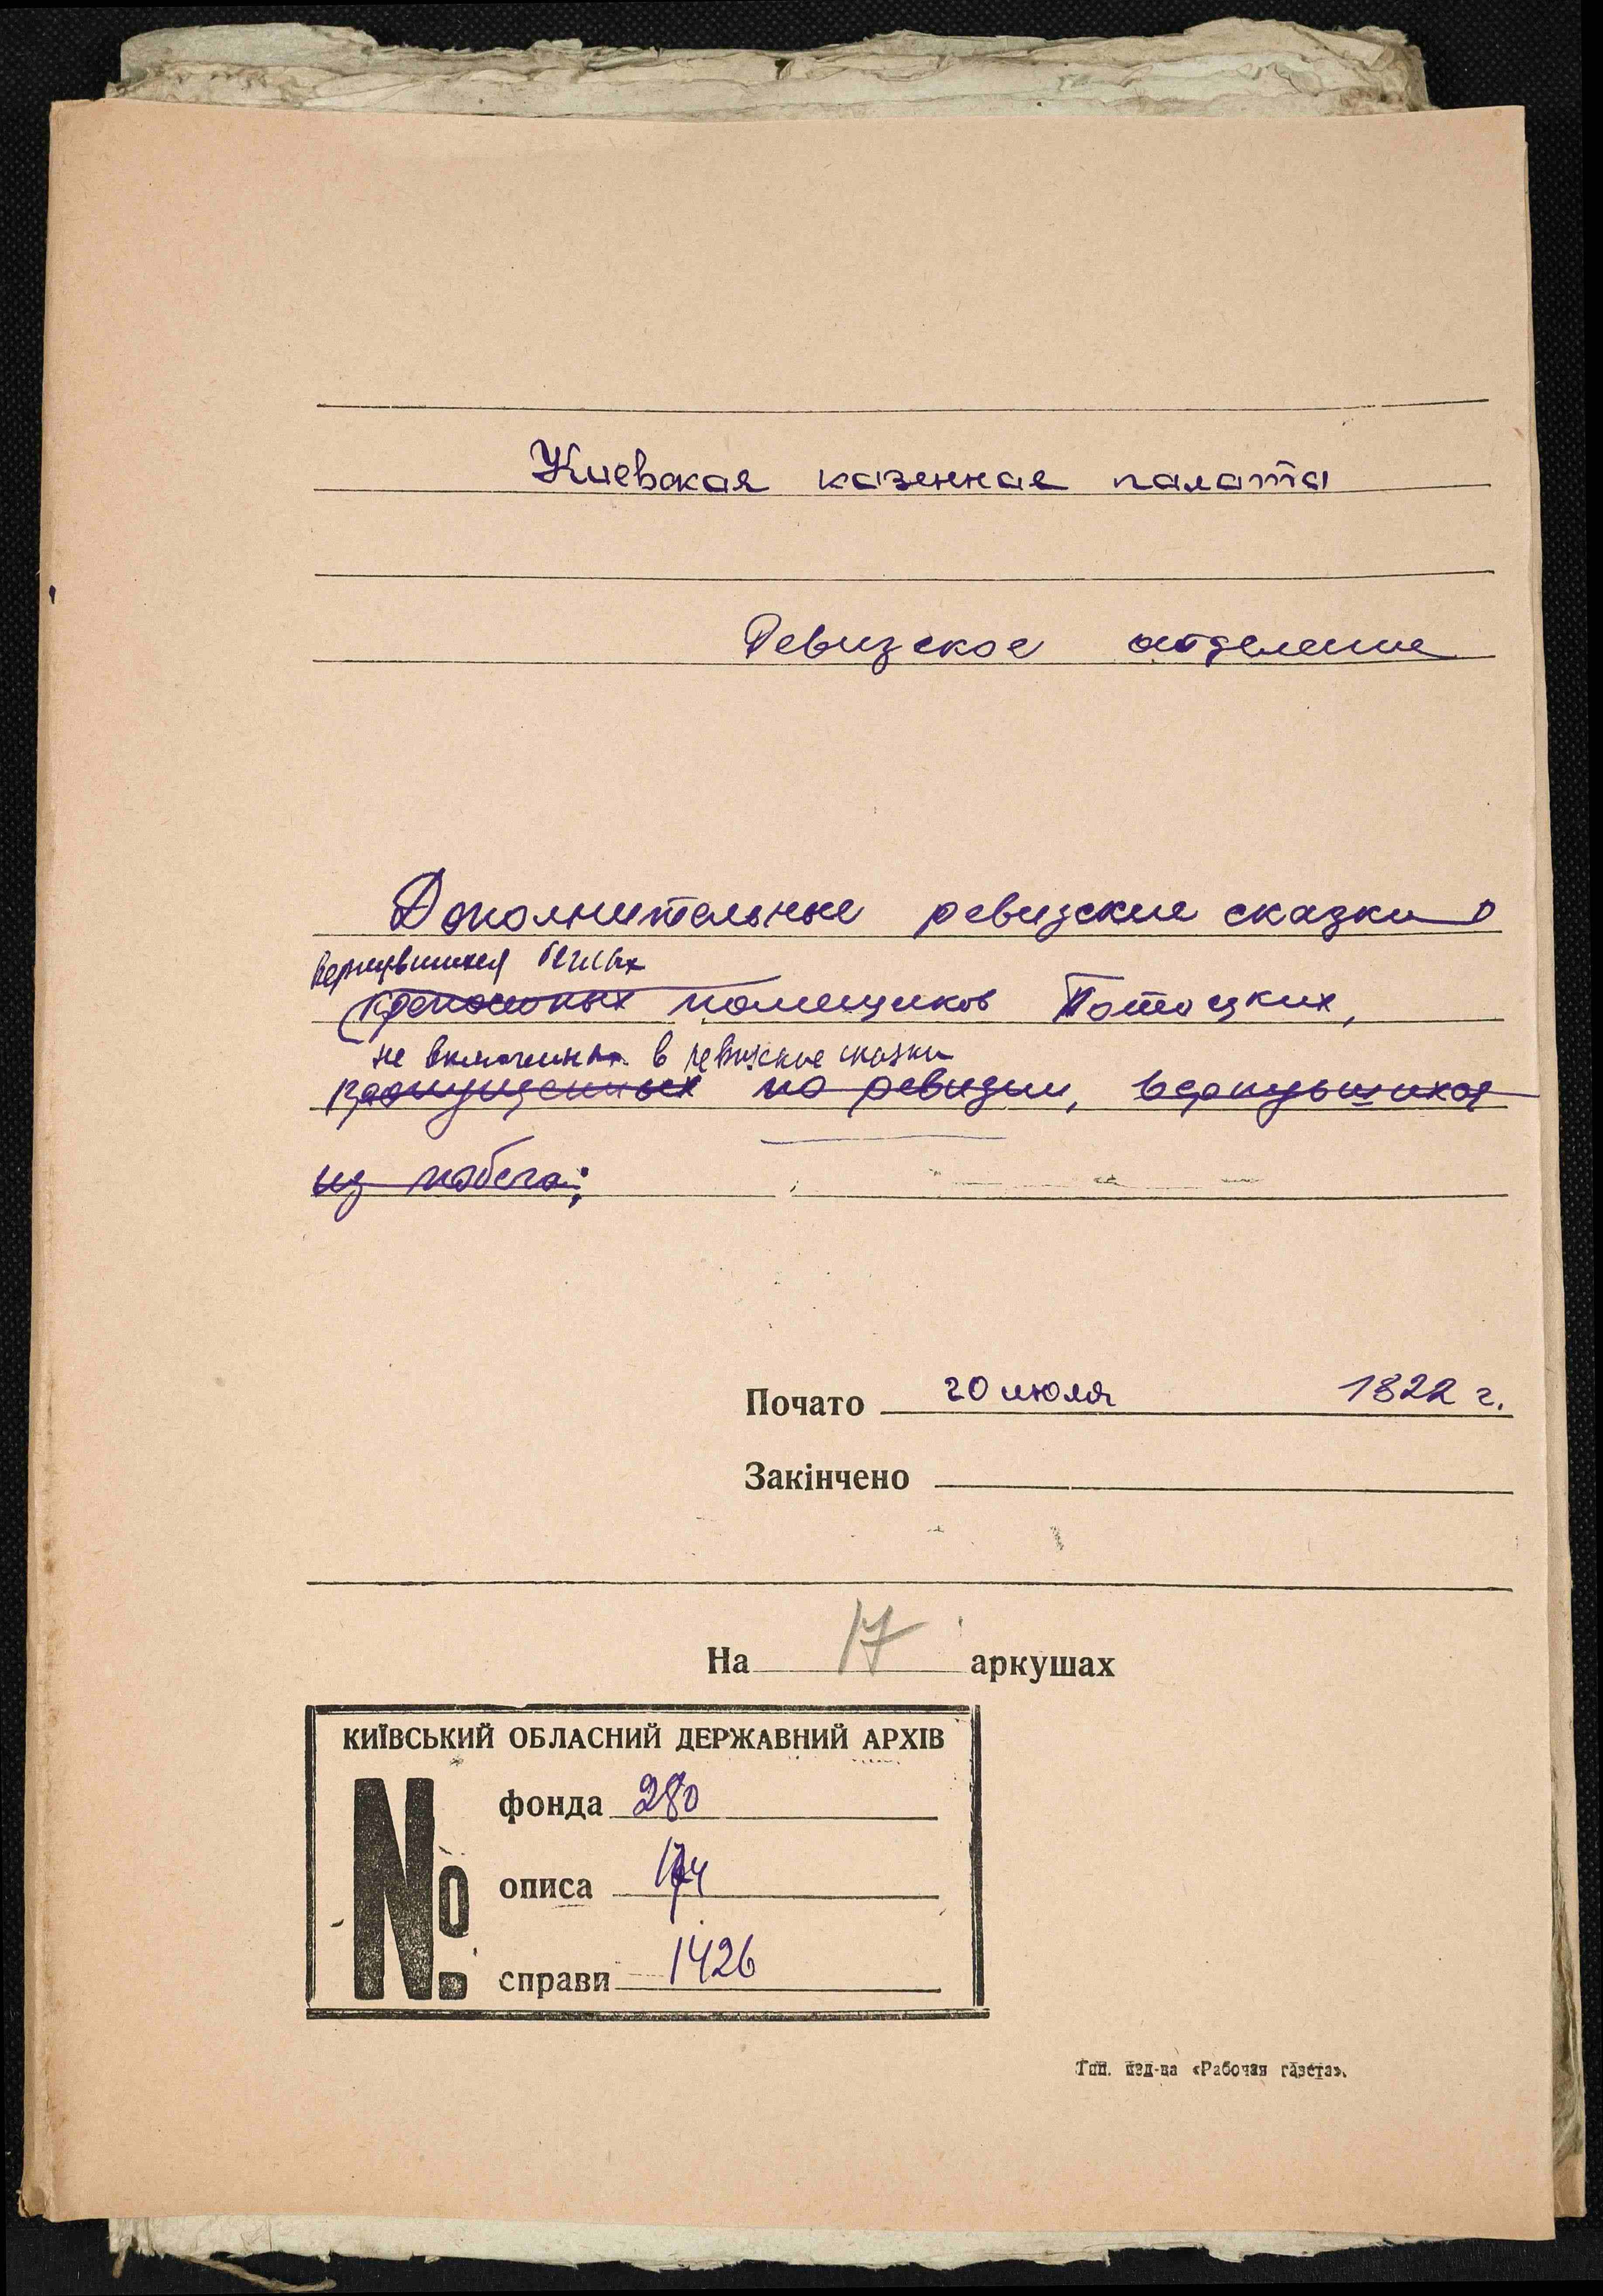 Киевская казенная палата
Ревизское отделение
Дополнительные ревизские сказки о
вернувшихся беглых
крепостных помещиков Потоцких,
не включенных в ревизские сказки
пропущенных по ревизии, вернувшихся
из побега;
Почато 20 июля 1822 г.
Закінчено
На 17 аркушах
КИЇВСЬКИЙ ОБЛАСНИЙ ДЕРЖАВНИЙ АРХІВ
№
фонда 280
описа 174
справи 1426
Тип. изд-ва «Рабочая газета».